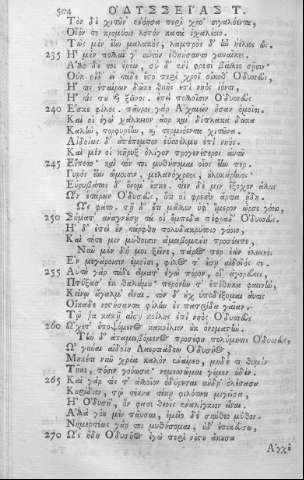 504 ΟΔΥΣΣΕΙΑΣ Τ.
Τὸν δὲ χιτῶν' ἐνόησα περὶ χροῒ σιγαλόεντα,
Οἷόν τε κρομύοιο λοπὸν κατὰ ἰσχαλέοιο.
Τὼς μὲν ἔην μαλακὸς, λαμπρὸς δ' ἦν ἠέλιος ὥς.
235 Ἦ μὲν πολλαί γ' αὐτὸν ἐθηήσαντο γυναῖκες.
Ἄλλο δέ τοι ἐρέω, σὺ δ' ἐνὶ φρεσὶ βάλλεο σῇσιν·
Οὐκ οἶδ' εἰ τάδε ἕστο περὶ χροῒ οἴκοθ' Ὀδυσσεὺς,
Ἤ τις ἑταίρων δῶκε θοῆς ἐπὶ νηὸς ἰόντι,
Ἤ τίς που ξεῖνος· ἐπεὶ πολλοῖσιν Ὀδυσσεὺς
240 Ἔσκε φίλος· παῦροι γὰρ Ἀχαιῶν ἦσαν ὁμοῖοι.
Καί οἱ ἐγὼ χάλκειον ἄορ καὶ δίπλακα δῶκα
Καλὴν, πορφυρέην, καὶ τερμιόεντα χιτῶνα·
Αἰδοίως δ' ἀπέπεμπον ἐϋσσέλμου ἐπὶ νηός.
Καὶ μέν οἱ κῆρυξ ὀλίγον προγενέστερος αὐτοῦ
245 Εἵπετο· καὶ τόν τοι μυθήσομαι οἷος ἔην περ·
Γυρὸς ἔην ὤμοισιν, μελανόχροος, οὐλοκάρηνος·
Εὐρυβάτης δ' ὄνομ' ἔσκε. τίεν δέ μιν ἔξοχον ἄλλων
Ὧν ἑτάρων Ὀδυσεὺς, ὅτι οἱ φρεσὶν ἄρτια ᾔδη.
Ὣς φάτο. τῇ δ' ἔτι μᾶλλον ὑφ' ἵμερον ὦρσε γόοιο,
250 Σήματ' ἀναγνούσῃ τά οἱ ἔμπεδα πέφραδ' Ὀδυσσεύς.
Ἡ δ' ἐπεὶ οὖν τάρφθη πολυδακρύτοιο γόοιο,
Καὶ τότε μιν μύθοισιν ἀμειβομένη προσέειπε,
Νῦν μὲν δή μοι ξεῖνε, πάρος περ ἐὼν ἐλεεινὸς
Ἐν μεγάροισιν ἐμοῖσι, φίλος τ' ἔσῃ αἰδοῖός τε.
255 Αὐτὴ γὰρ τάδε εἵματ' ἐγὼ πόρον, οἷ' ἀγορεύεις,
Πτύξασ' ἐκ θαλάμου· περόνην τ' ἐπέθηκα φαεινὴν,
Κείνῳ ἄγαλμ' εἶναι. τὸν δ' οὐχ ὑποδέξομαι αὖτις
Οἴκαδε νοστήσαντα φίλην ἐς πατρίδα γαῖαν.
Τῷ ῥα κακῇ αἴσῃ κοίλης ἐπὶ νηὸς Ὀδυσσεὺς
260 Ὤχετ' ἐποψόμενος Κακοΐλιον οὐκ ὀνομαστήν.
Τὴν δ' ἀπαμειβόμενος προσέφη πολύμητις Ὀδυσσεὺς,
Ὦ γύναι αἰδοίη Λαερτιάδεω Ὀδυσῆος,
Μηκέτι νῦν χρόα καλὸν ἐναίρεο, μηδέ τι θυμὸν
Τῆκε, πόσιν γοόωσα· νεμεσσῶμαί γε μὲν οὐδέν.
265 Καὶ γάρ τίς τ' ἀλλοῖον ὀδύρεται ἄνδρ' ὀλέσασα
Κουρίδιον, τῷ τέκνα τέκῃ φιλότητι μιγεῖσα,
Ἢ Ὀδυσῆ', ὅν φασι θεοῖς ἐναλίγκιον εἶναι.
Ἀλλὰ γόου μὲν παῦσαι, ἐμεῖο δὲ σύνθεο μῦθον·
Νημερτέως γάρ τοι μυθήσομαι, οὐδ' ἐπικεύσω,
270 Ὡς ἤδη Ὀδυσῆος ἐγὼ περὶ νόστου ἄκουσα
Ἀγχοῦ